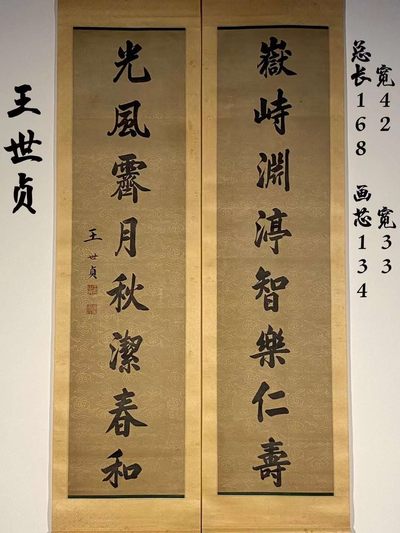 嶽峙淵渟智樂仁壽
光風霽月秋潔春和
王世貞
王世贞
总长168 画芯134
宽42 宽33